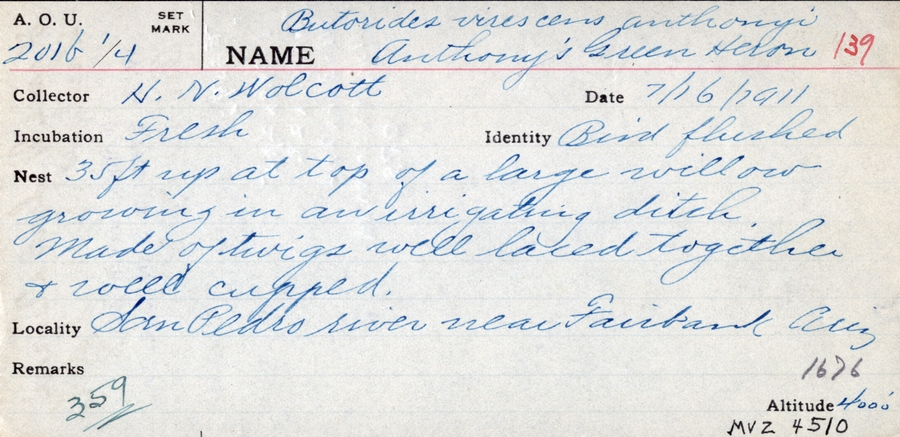 A. O. U. SET MARK Butorides virescens anthonyi
201b 1/4 NAME Anthony's Green Heron 139
Collector H. N. Wolcott Date 7/16/1911
Incubation Fresh Identity Bird flushed
Nest 35ft up at top of a large willow
growing in an irrigating ditch
Made of twigs well laced together
& well cupped.
Locality San Pedro river near Fairbank Ariz
Remarks 1676
359
Altitude 4000'
MVZ 4510